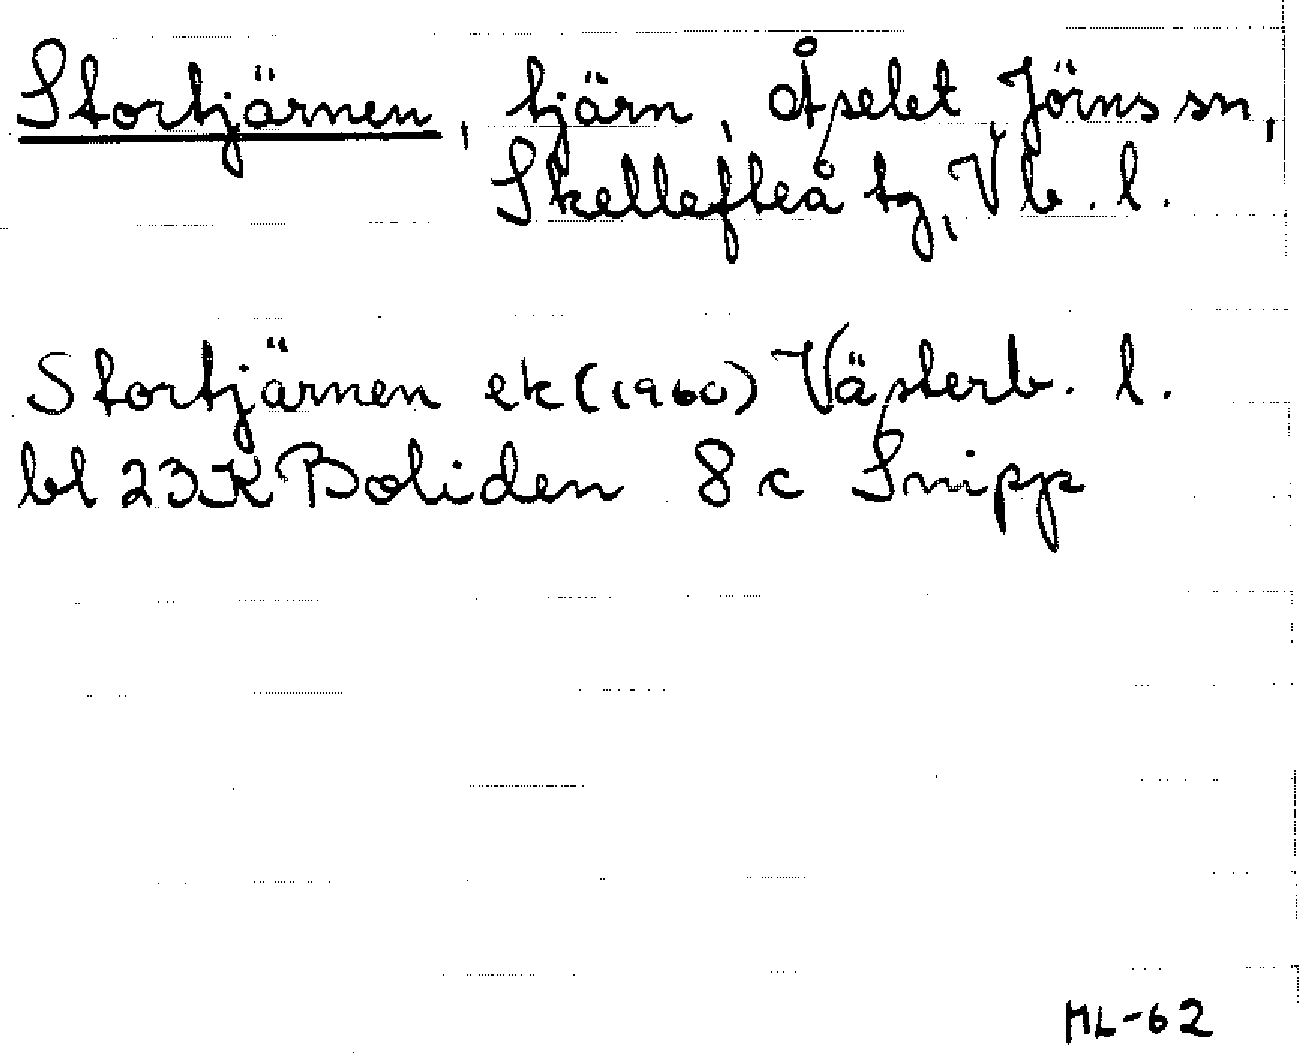 Stortjärnen, tjärn, Åselet Jörns sn,
Skellefteå tg, Vb. l.
Stortjärnen ek (1960) Västerb. l.
bl 23K Boliden 8c Snipp
ML-62